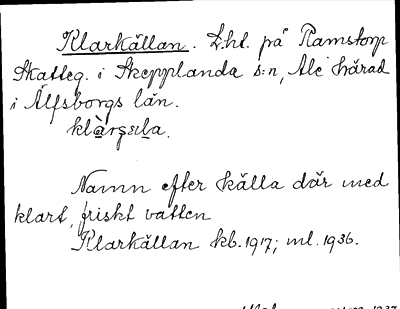 Klarkällan. Lht. på Ramstorp
Skatteg. i Skepplanda s:n, Ale härad
i Älfsborgs län.
Namn efter källa där med
klart, friskt vatten
Klarkällan kb. 1917; ml. 1936.